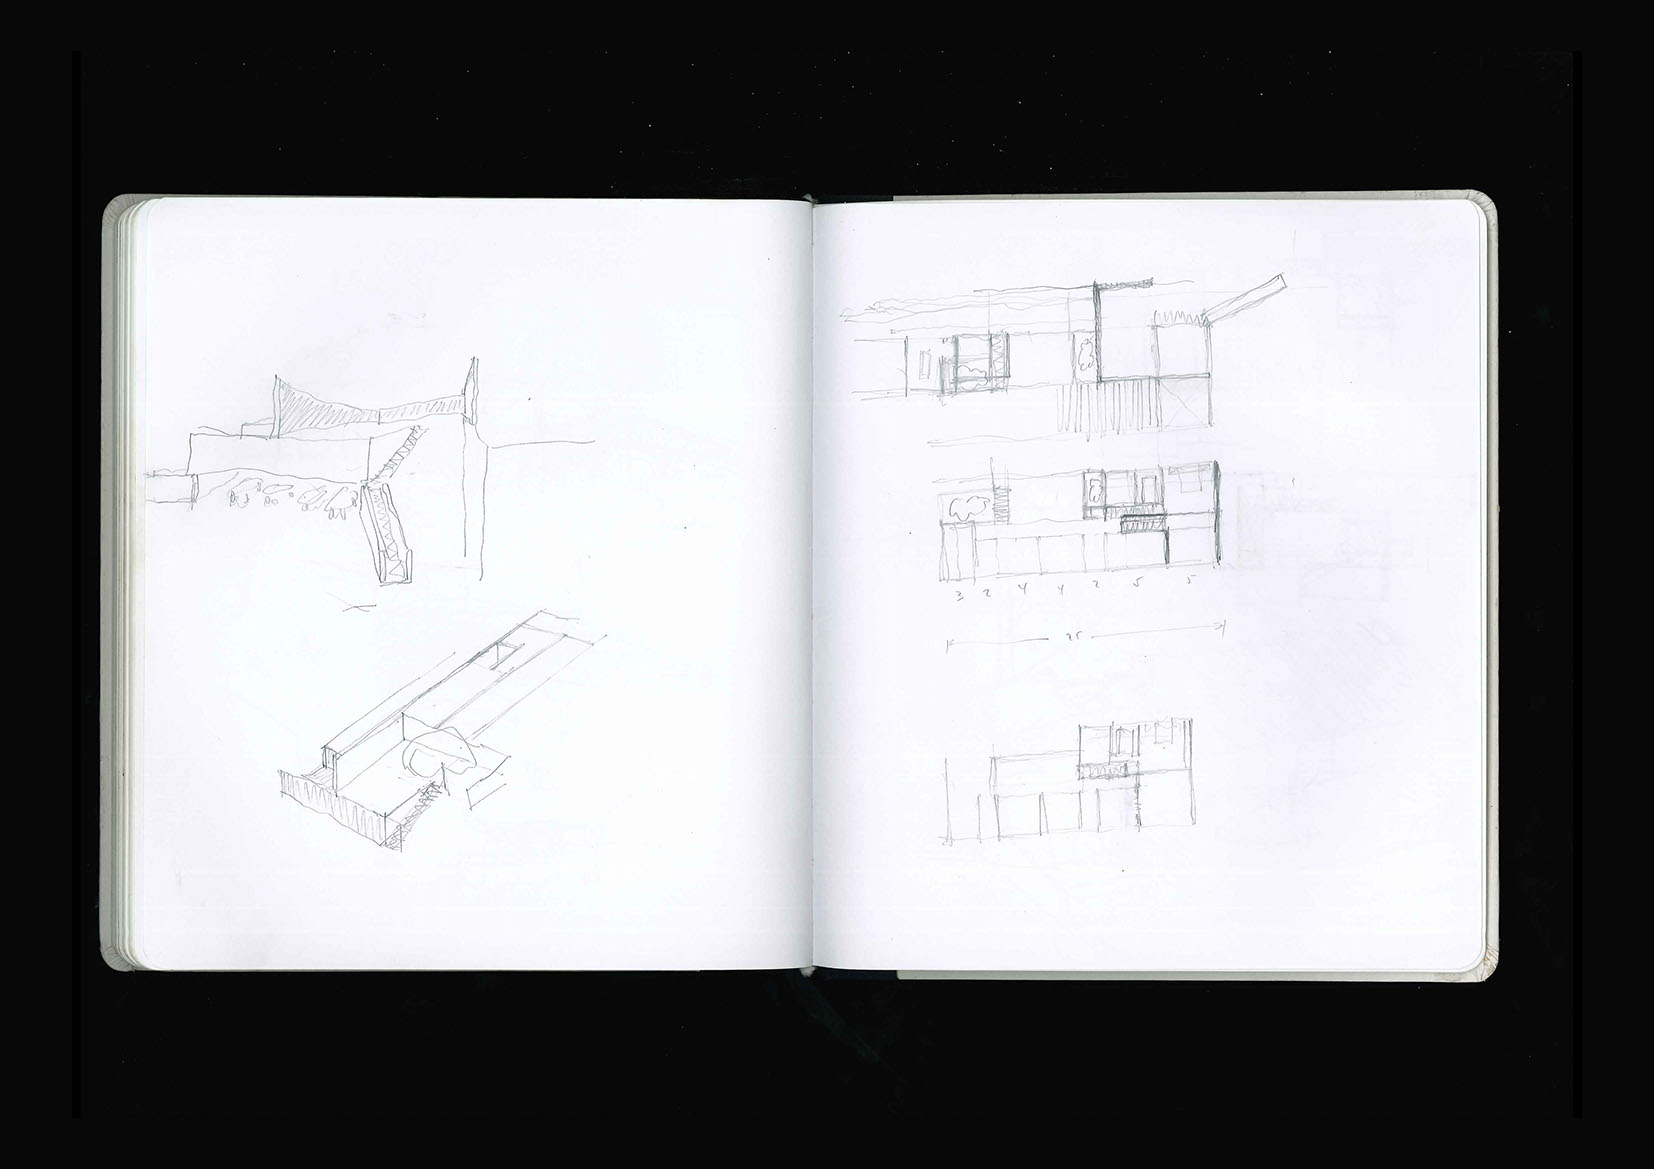 3 2 4 4 2 5 5
25